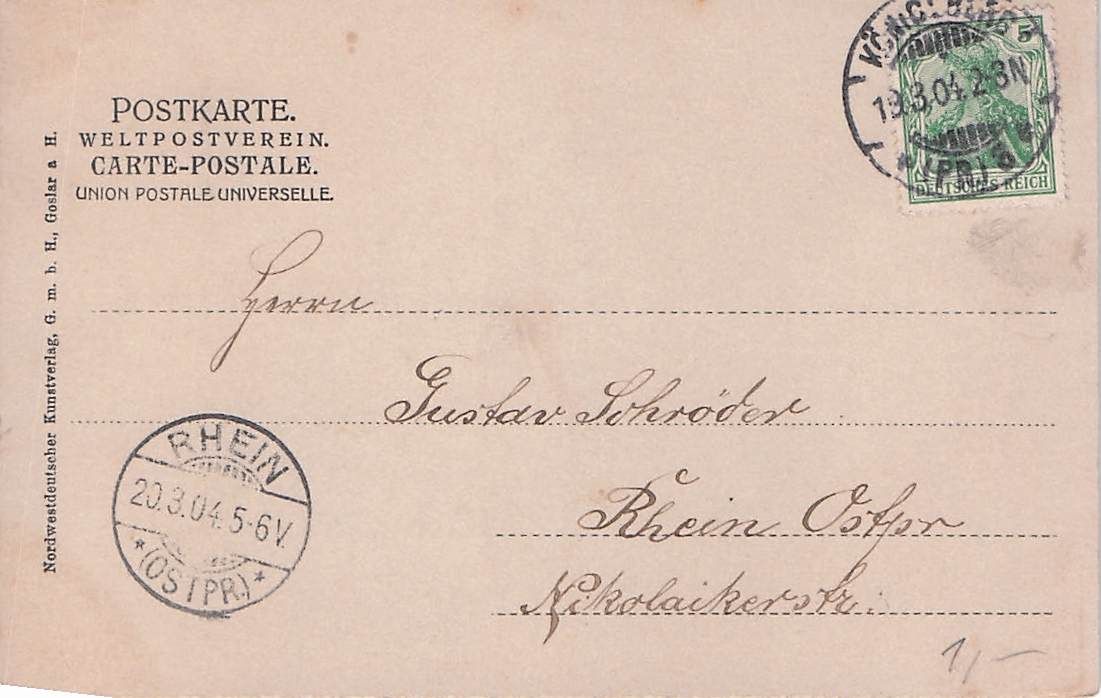 POSTKARTE.
WELTPOSTVEREIN.
CARTE-POSTALE.
UNION POSTALE UNIVERSELLE.
Nordwestdeutscher Kunstverlag, G. m. b. H., Goslar a H.
5
19.3.04. 2-3N
* (PR.)
DEUTSCHES REICH
Herrn
Gustav Schröder
Rhein Ostpr
Nikolaikerstr.
RHEIN
20.3.04. 5-6V.
* (OSTPR.) *
1,-